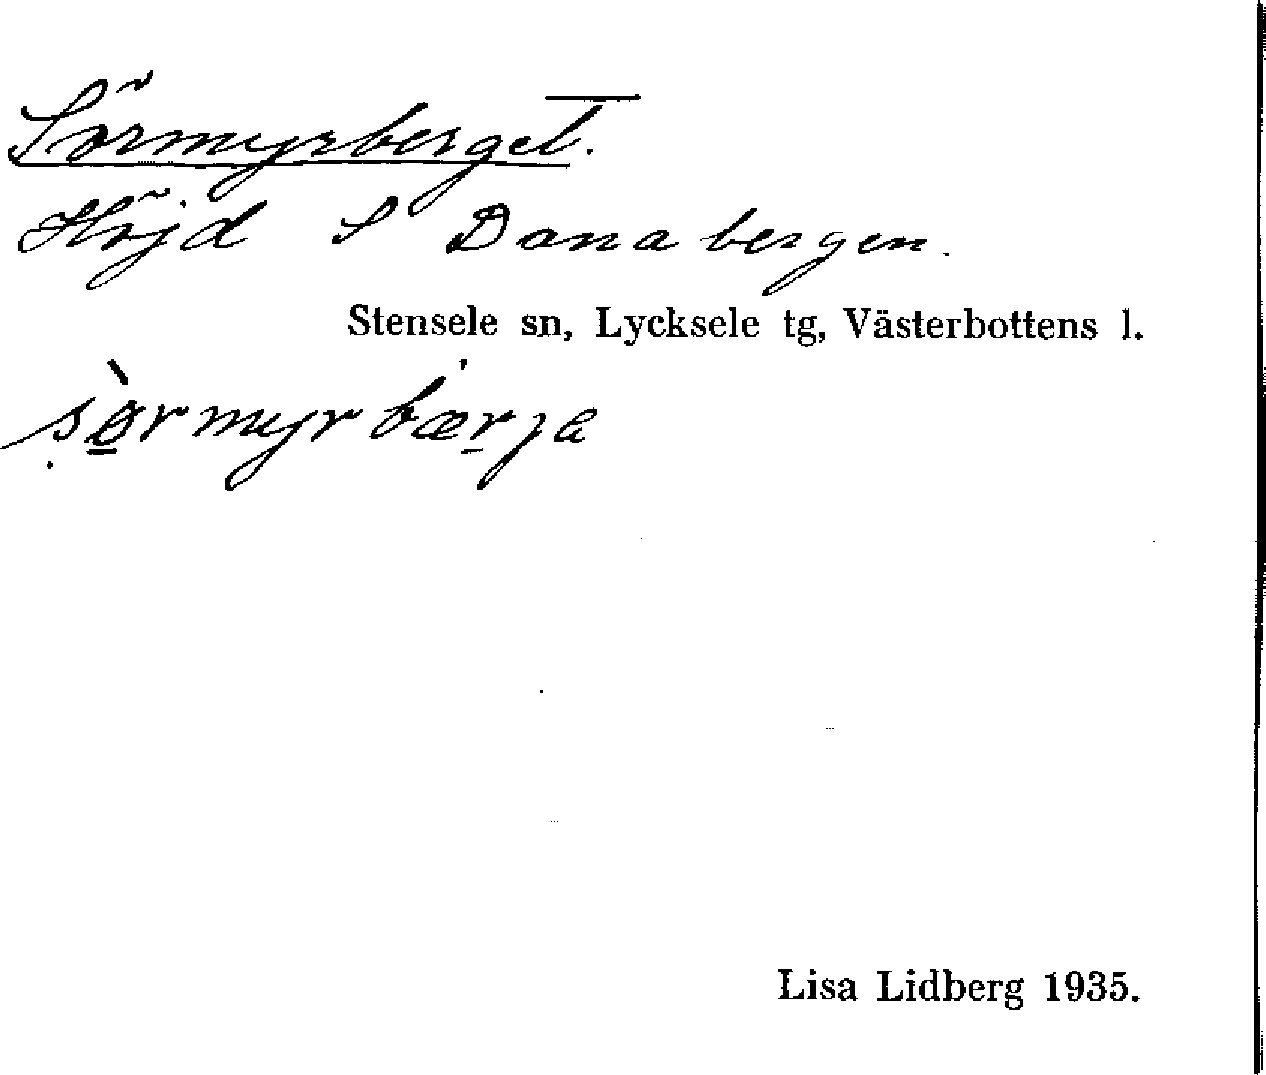 Sörmyrberget.
Höjd S Danabergen.
Stensele sn, Lycksele tg, Västerbottens l.
sø̀rmyrbærja
Lisa Lidberg 1935.